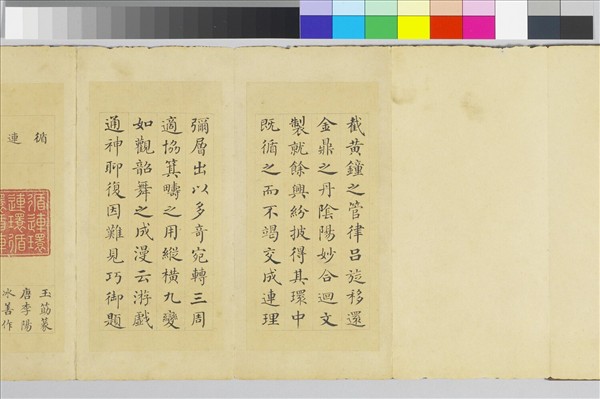 截黃鐘之管律呂旋移還
金鼎之丹陰陽妙合迴文
製就餘興紛披得其環中
既循之而不竭交成連理
彌層出以多奇宛轉三周
適協箕疇之用縱橫九變
如觀韶舞之成漫云游戲
通神聊復因難見巧御題
循連
玉筯篆
唐李陽
冰善作